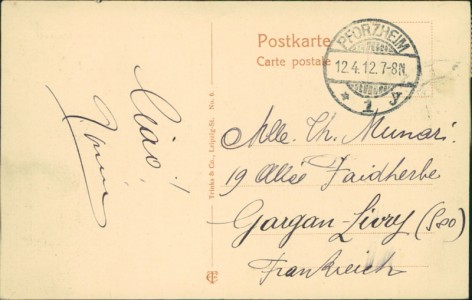 Postkarte
Carte postale
PFORZHEIM
12.4.12.7-8N.
* 1 *
Ciao!
Trinks & Co., Leipzig-St. No. 8.
Mlle. Th. Munari.
19 Allée Faidherbe
Gargan-Livry (S&O)
Frankreich